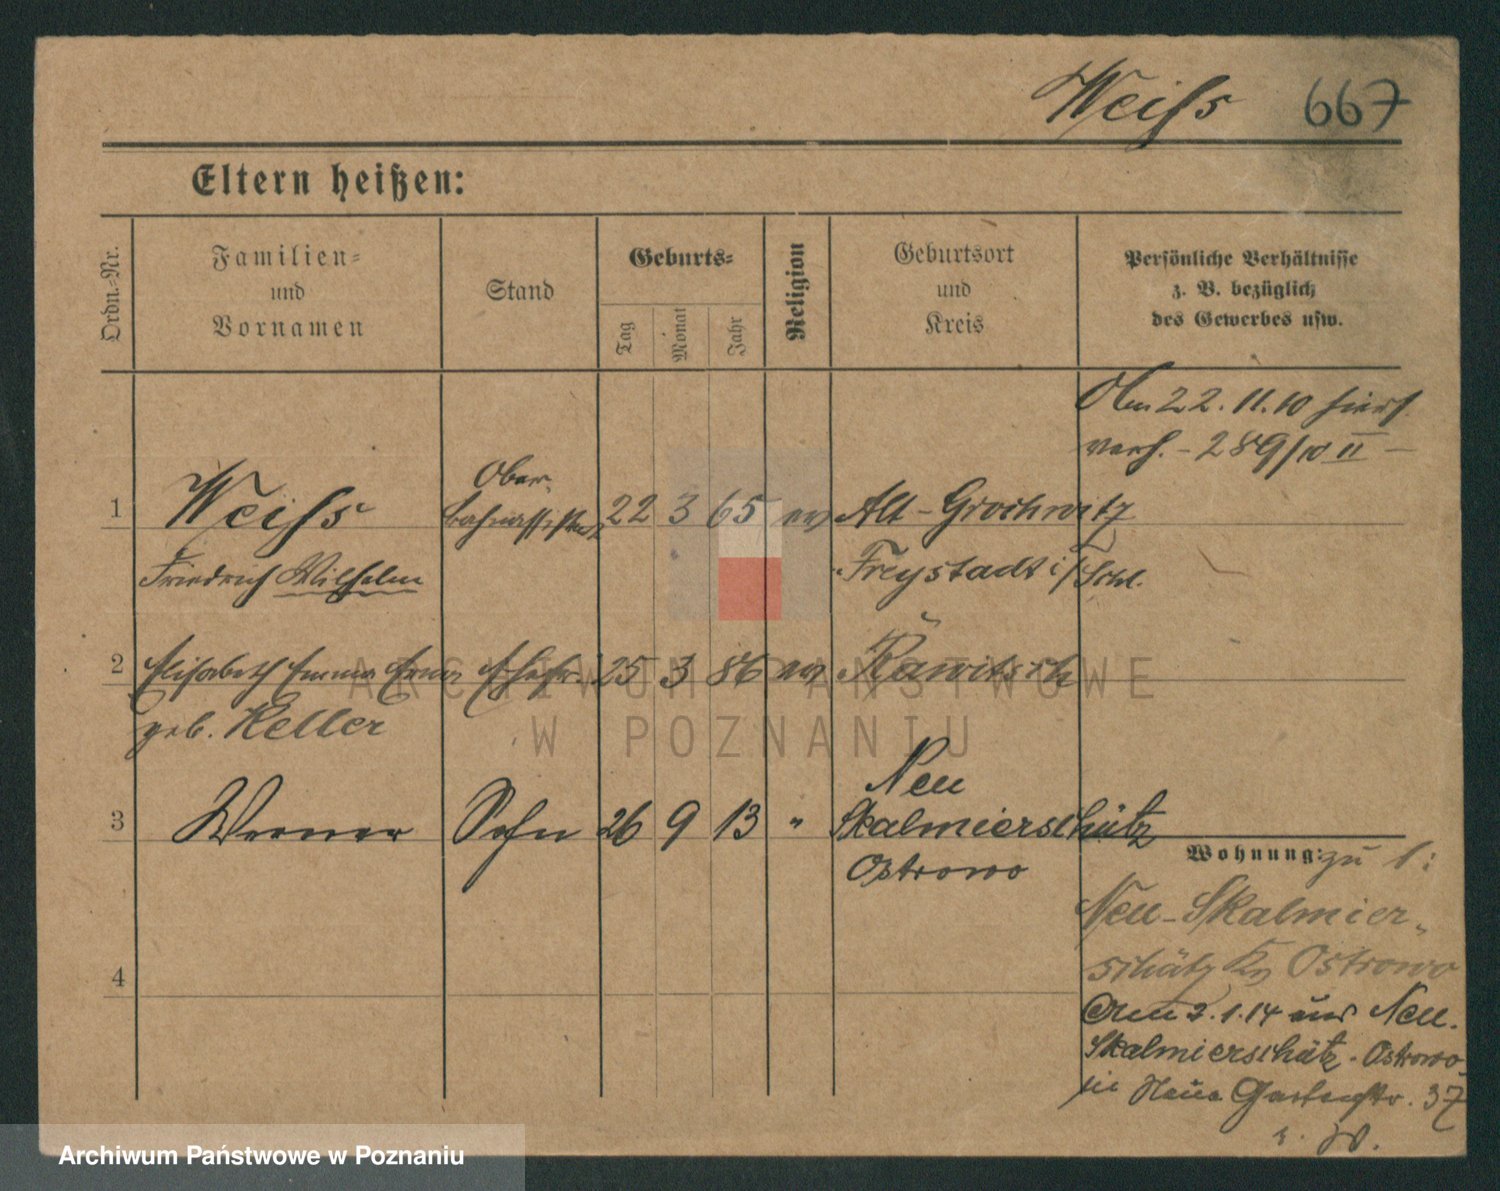 Weiss 667
Eltern heißen:
Ordn.-Nr.
Familien-
und
Vornamen
Stand
Geburts-
Tag
Monat
Jahr
Religion
Geburtsort
und
Kreis
Persönliche Verhältnisse
z. B. bezüglich
des Gewerbes usw.
Am 22.11.10 hiers.
verh. - 289/10 II -
Ober-
1 Weiss bahnassistent 22 3 65 ev Alt-Grochwitz
Friedrich Wilhelm Freystadt i/Schl.
2 Elisabeth Emma Erna Ehefr. 25 3 86 ev Rawitsch
geb. Keller
Neu
3 Werner Sohn 26 9 13 " Skalmierschütz
Ostrowo
Wohnung: zu 1:
Neu-Skalmier-
schütz Kr Ostrowo
4
am 2.1.14 aus Neu-
Skalmierschütz-Ostrowo
in Neue Gartenstr. 37
ARCHIWUM PAŃSTWOWE
W POZNANIU
Archiwum Państwowe w Poznaniu